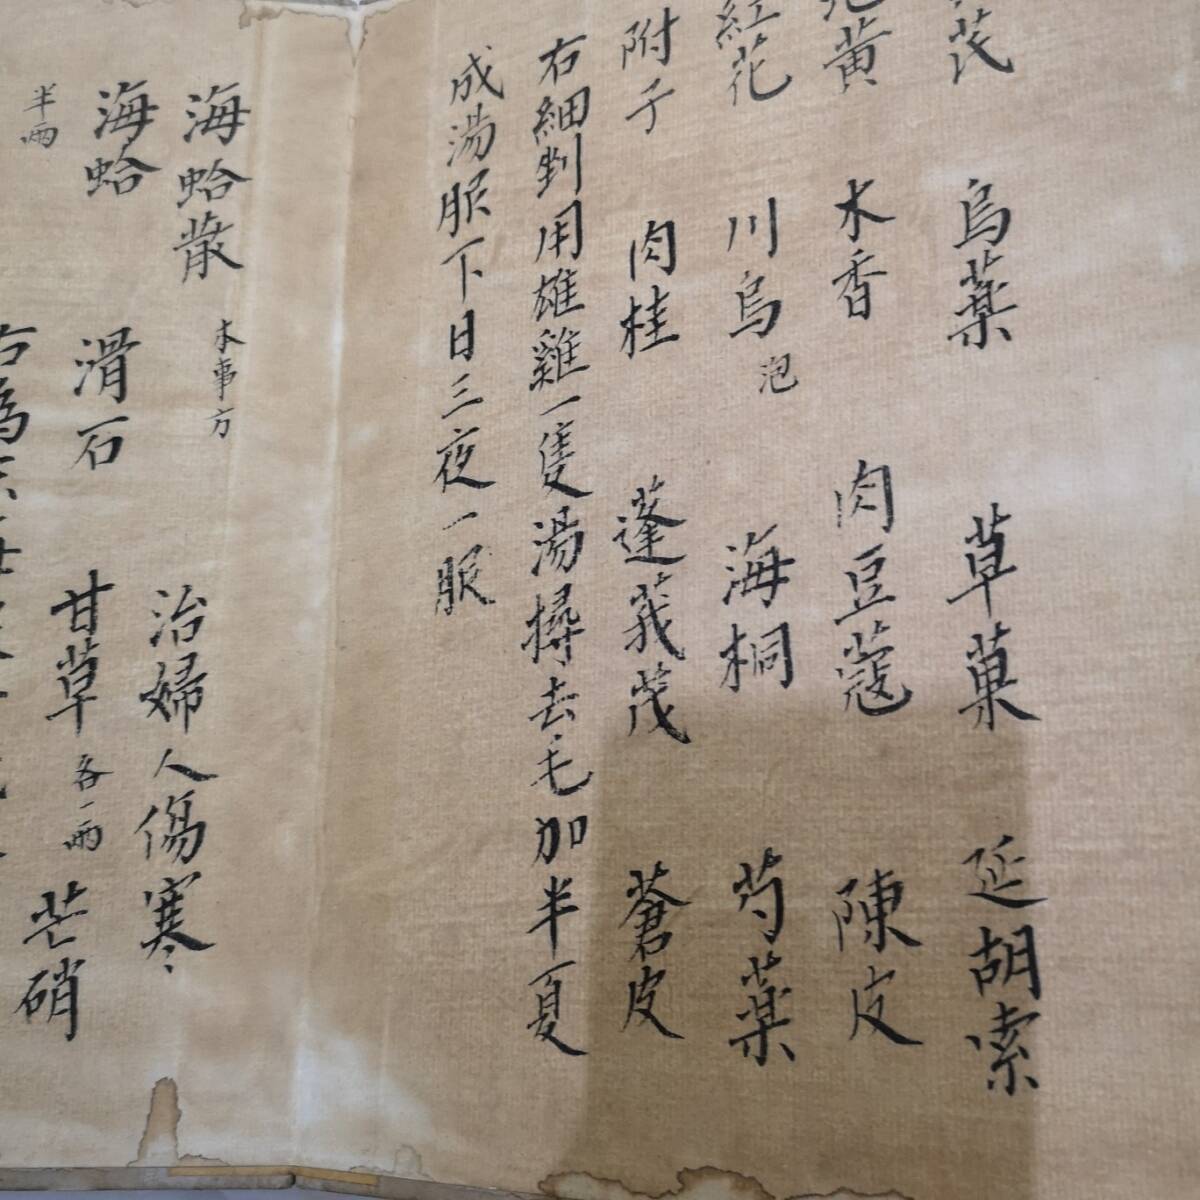 芪 烏藥 草菓 延胡索
黃 木香 肉豆蔻 陳皮
紅花 川烏泡 海桐 芍藥
附子 肉桂 蓬莪茂 蒼皮
右細剉用雄雞一隻湯撏去毛加半夏
成湯服下日三夜一服
海蛤散 本事方 治婦人傷寒
海蛤 滑石 甘草各一兩 芒硝
半兩
右為末